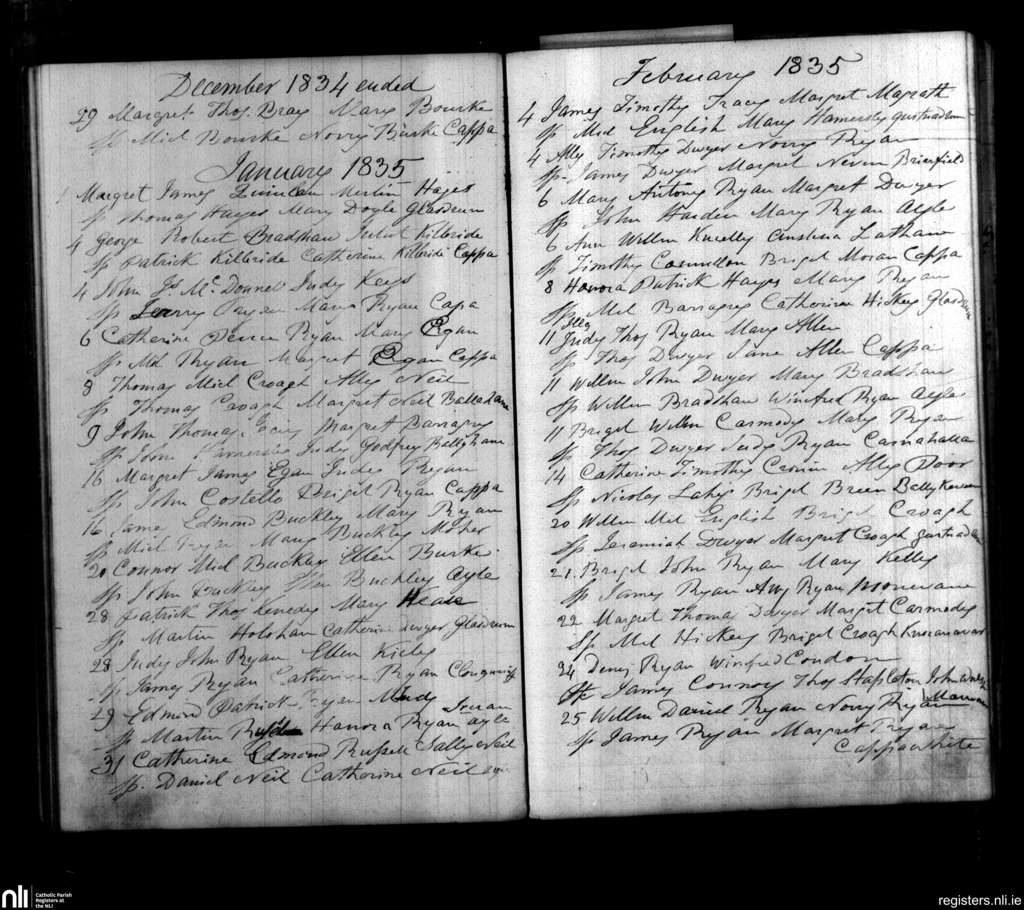 December 1834 ended
29 Margret Thos. Bray Mary Bourke
Sp Mid Bourke Norry Burke Cappa
January 1835
Margret James Quinlan Hayes
Sp Thomas Hayes Mary Doyle Glasdrum
4 George Robert Bradshaw Juliet Kilbride
Sp Patrick Kilbride Catherine Kilbride Cappa
4 John Js. McDonnel Judy Keys
Sp Mary Ryan Capa
6 Catherine Ryan Mary Egan
Sp Mid Ryan Margret Egan Cappa
8 Thomas Mid Croagh Ally Neil
Sp Thomas Croagh Margret Neil
9 John Thomas Margret Barragry
Sp John Judy Godfrey
16 Margret James Egan Judy Ryan
Sp John Costello Briget Ryan Cappa
16 James Edmond Buckley Mary Ryan
Sp Mid Mary Buckley Moher
20 Connor Mid Buckley Ellen Burke
Sp John Buckley Ellen Buckley Ayle
28 Patrick Thos Kenedy Mary
Sp Martin Holohan Catherine Dwyer Glasdrum
28 Judy John Ryan Ellen Kieley
Sp James Ryan Catherine Ryan
29 Edmond Patrick Ryan
Sp Martin Honora Ryan Ayle
31 Catherine Edmond Russell Sally Neil
Sp. Daniel Neil Catherine Neil
February 1835
4 James Timothy Tracy Margret Magrath
Sp Mid English Mary Hamersly
4 Ally Timothy Dwyer Norry Ryan
Sp. James Dwyer Margret Nevin
6 Mary Antony Ryan Margret Dwyer
Sp John Harden Mary Ryan Ayle
6 Ann Willm Latham
Sp Timothy Briget Moran Cappa
8 Honora Patrick Hayes Mary Ryan
Sp Mid Barragry Catherine Hickey
Illeg
11 Judy Thos Ryan Mary Allen
Sp Thos Dwyer Jane Allen Cappa
11 Willm John Dwyer Mary Bradshaw
Sp Willm Bradshaw Winifred Ryan Ayle
11 Briget Willm Carmody Mary Ryan
Sp Thos Dwyer Judy Ryan Carnahalla
14 Catherine Timothy Cronin Ally Poor
Sp Nicolas Lahy Briget Breen
20 Willm Mid English Briget Croagh
Sp Jeremiah Dwyer Margret Croagh
21 Briget John Ryan Mary Kelly
Sp James Ryan Ryan
22 Margret Thomas Dwyer Margret Carmody
Sp Mid Hickey Briget Croagh
24 Denis Ryan Winifred Condon
James Connor Thos Stapleton John
25 Willm Daniel Ryan Norry Ryan
Sp James Ryan Margret Ryan
Cappawhite
nli
Catholic Parish
Registers at
the NLI
registers.nli.ie